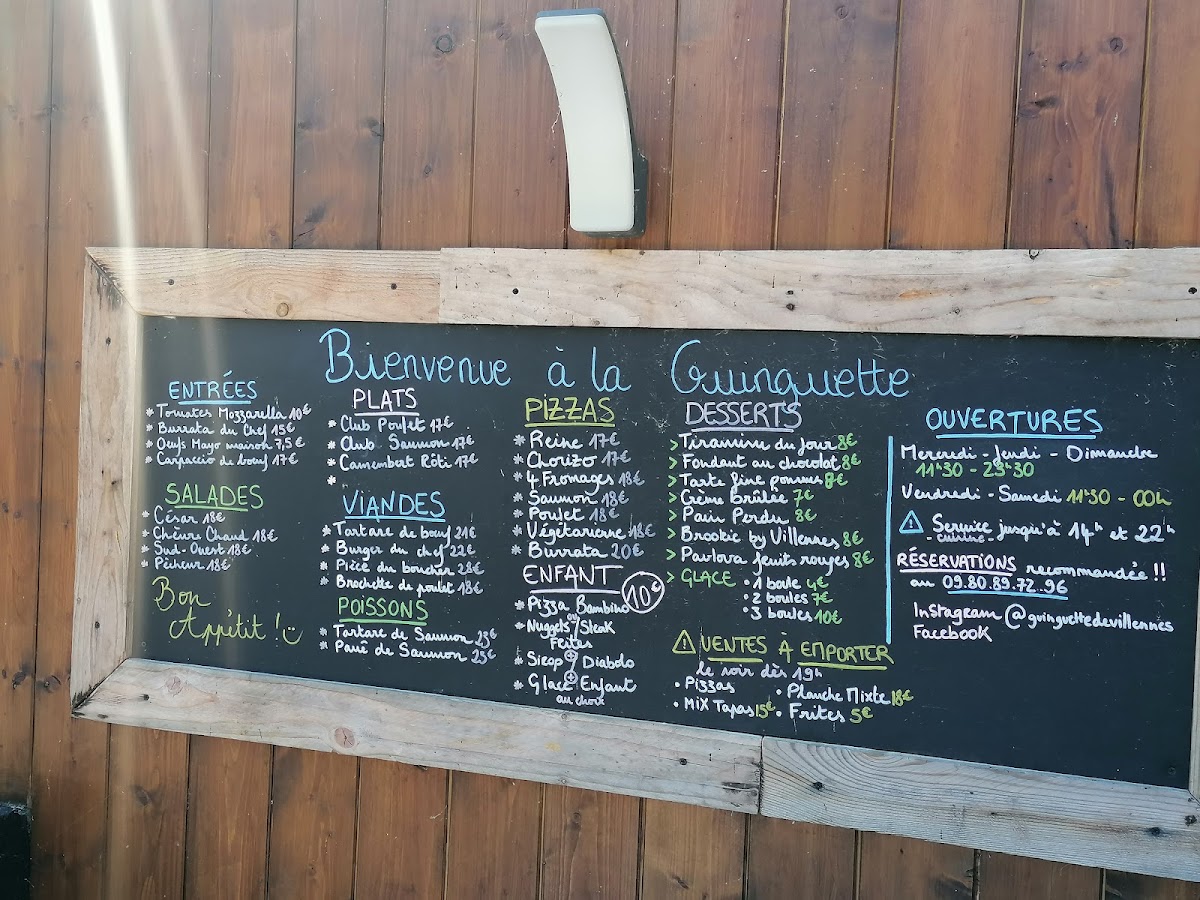 Bienvenue à la Guinguette
ENTRÉES
* Tomates Mozzarella 10€
* Burrata du Chef 15€
* Oeufs Mayo maison 7,5€
* Carpaccio de boeuf 17€
SALADES
* César 18€
* Chèvre Chaud 18€
* Sud-Ouest 18€
* Pêcheur 18€
Bon
Appétit !
PLATS
* Club Poulet 17€
* Club Saumon 17€
* Camembert Rôti 17€
*
VIANDES
* Tartare de boeuf 21€
* Burger du chef 22€
* Pièce du boucher 28€
* Brochette de poulet 18€
POISSONS
* Tartare de Saumon 23€
* Pavé de Saumon 25€
PIZZAS
* Reine 17€
* Chorizo 17€
* 4 Fromages 18€
* Saumon 18€
* Poulet 18€
* Végétarienne 18€
* Burrata 20€
ENFANT 10€
* Pizza Bambino
ou
* Nuggets / Steak
Frites
+
* Sirop / Diabolo
+
* Glace Enfant
au choix
DESSERTS
> Tiramisu du jour 8€
> Fondant au chocolat 8€
> Tarte fine pommes 8€
> Crème Brûlée 7€
> Pain Perdu 8€
> Brookie by Villennes 8€
> Pavlova fruits rouges 8€
> GLACE • 1 boule 4€
• 2 boules 7€
• 3 boules 10€
VENTES À EMPORTER
le soir dès 19h
• Pizzas • Planche Mixte 18€
• Mix Tapas 15€ • Frites 5€
OUVERTURES
Mercredi - Jeudi - Dimanche
11h30 - 23h30
Vendredi - Samedi 11h30 - 00h
Service jusqu'à 14h et 22h
- cuisine -
RÉSERVATIONS recommandée !!
au 09.80.89.72.96
Instagram @guinguettedevillennes
Facebook